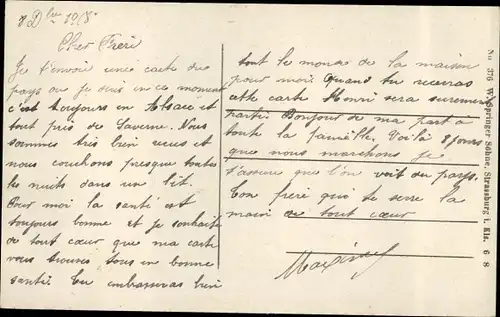 Dbre 1918
Cher Frère
Je t'envoi une carte du
pays ou je suis en ce moment
c'est toujours en Alsace et
tout près de Saverne. Nous
sommes très bien reçus et
nous couchons presque toutes
les nuits dans un lit.
Pour moi la santé est
toujours bonne et je souhaite
de tout cœur que ma carte
vous trouves tous en bonne
santé. Tu embrasseras bien
tout le monde de la maison
pour moi. Quand tu recevras
cette carte Henri sera surement
partit. Bonjour de ma part à
toute la famille. Voilà 8 jours
que nous marchons je
t'assure que l'on voit du pays.
Ton frère qui te serre la
main de tout cœur
No 376 W. Springer Söhne, Strassburg i. Els. 6 8